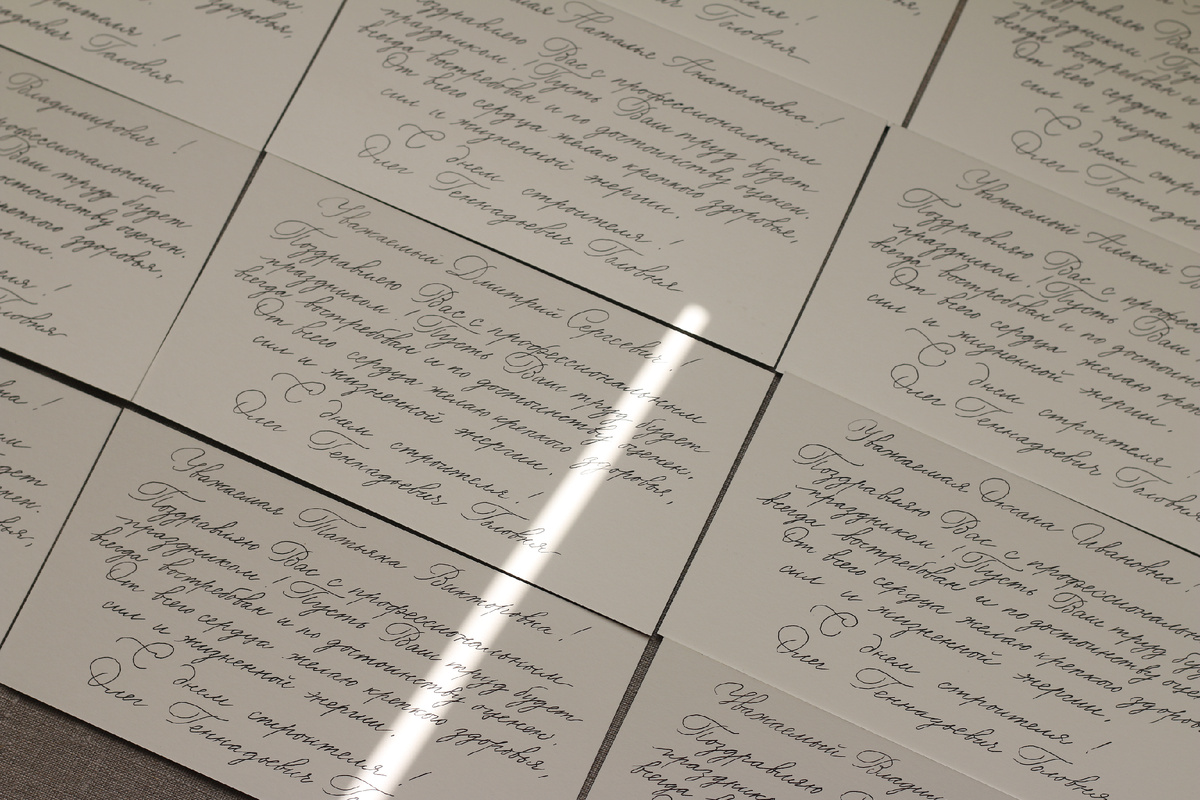 здоровья,
!
Головня
строителя !
Головня
Наталья Анатольевна !
Поздравляю Вас с профессиональным
праздником ! Пусть Ваш труд будет
всегда востребован и по достоинству оценен.
От всего сердца желаю крепкого здоровья,
сил и жизненной энергии.
С днем строителя !
Олег Геннадьевич Головня
праздником
всегда востребован
От всего сердца
сил и
С днем
Олег
Владимирович !
профессиональным
Ваш труд будет
достоинству оценен.
крепкого здоровья,
энергии.
!
Головня
Уважаемый Дмитрий Сергеевич !
Поздравляю Вас с профессиональным
праздником ! Пусть Ваш труд будет
всегда востребован и по достоинству оценен.
От всего сердца желаю крепкого здоровья,
сил и жизненной энергии.
С днем строителя !
Олег Геннадьевич Головня
Уважаемый Алексей
Поздравляю Вас с
праздником ! Пусть Ваш
всегда востребован и по
От всего сердца желаю
сил и жизненной энергии.
С днем строителя !
Олег Геннадьевич
!
Уважаемая Татьяна Викторовна !
Поздравляю Вас с профессиональным
праздником ! Пусть Ваш труд будет
всегда востребован и по достоинству оценен.
От всего сердца желаю крепкого здоровья,
сил и жизненной энергии.
С днем строителя !
Олег Геннадьевич
Уважаемая Оксана Ивановна !
Поздравляю Вас с
праздником ! Пусть Ваш труд
всегда востребован и по достоинству
От всего сердца желаю крепкого
сил и жизненной энергии.
С днем строителя !
Олег Геннадьевич Головня
Уважаемый
Поздравляю
праздником
всегда